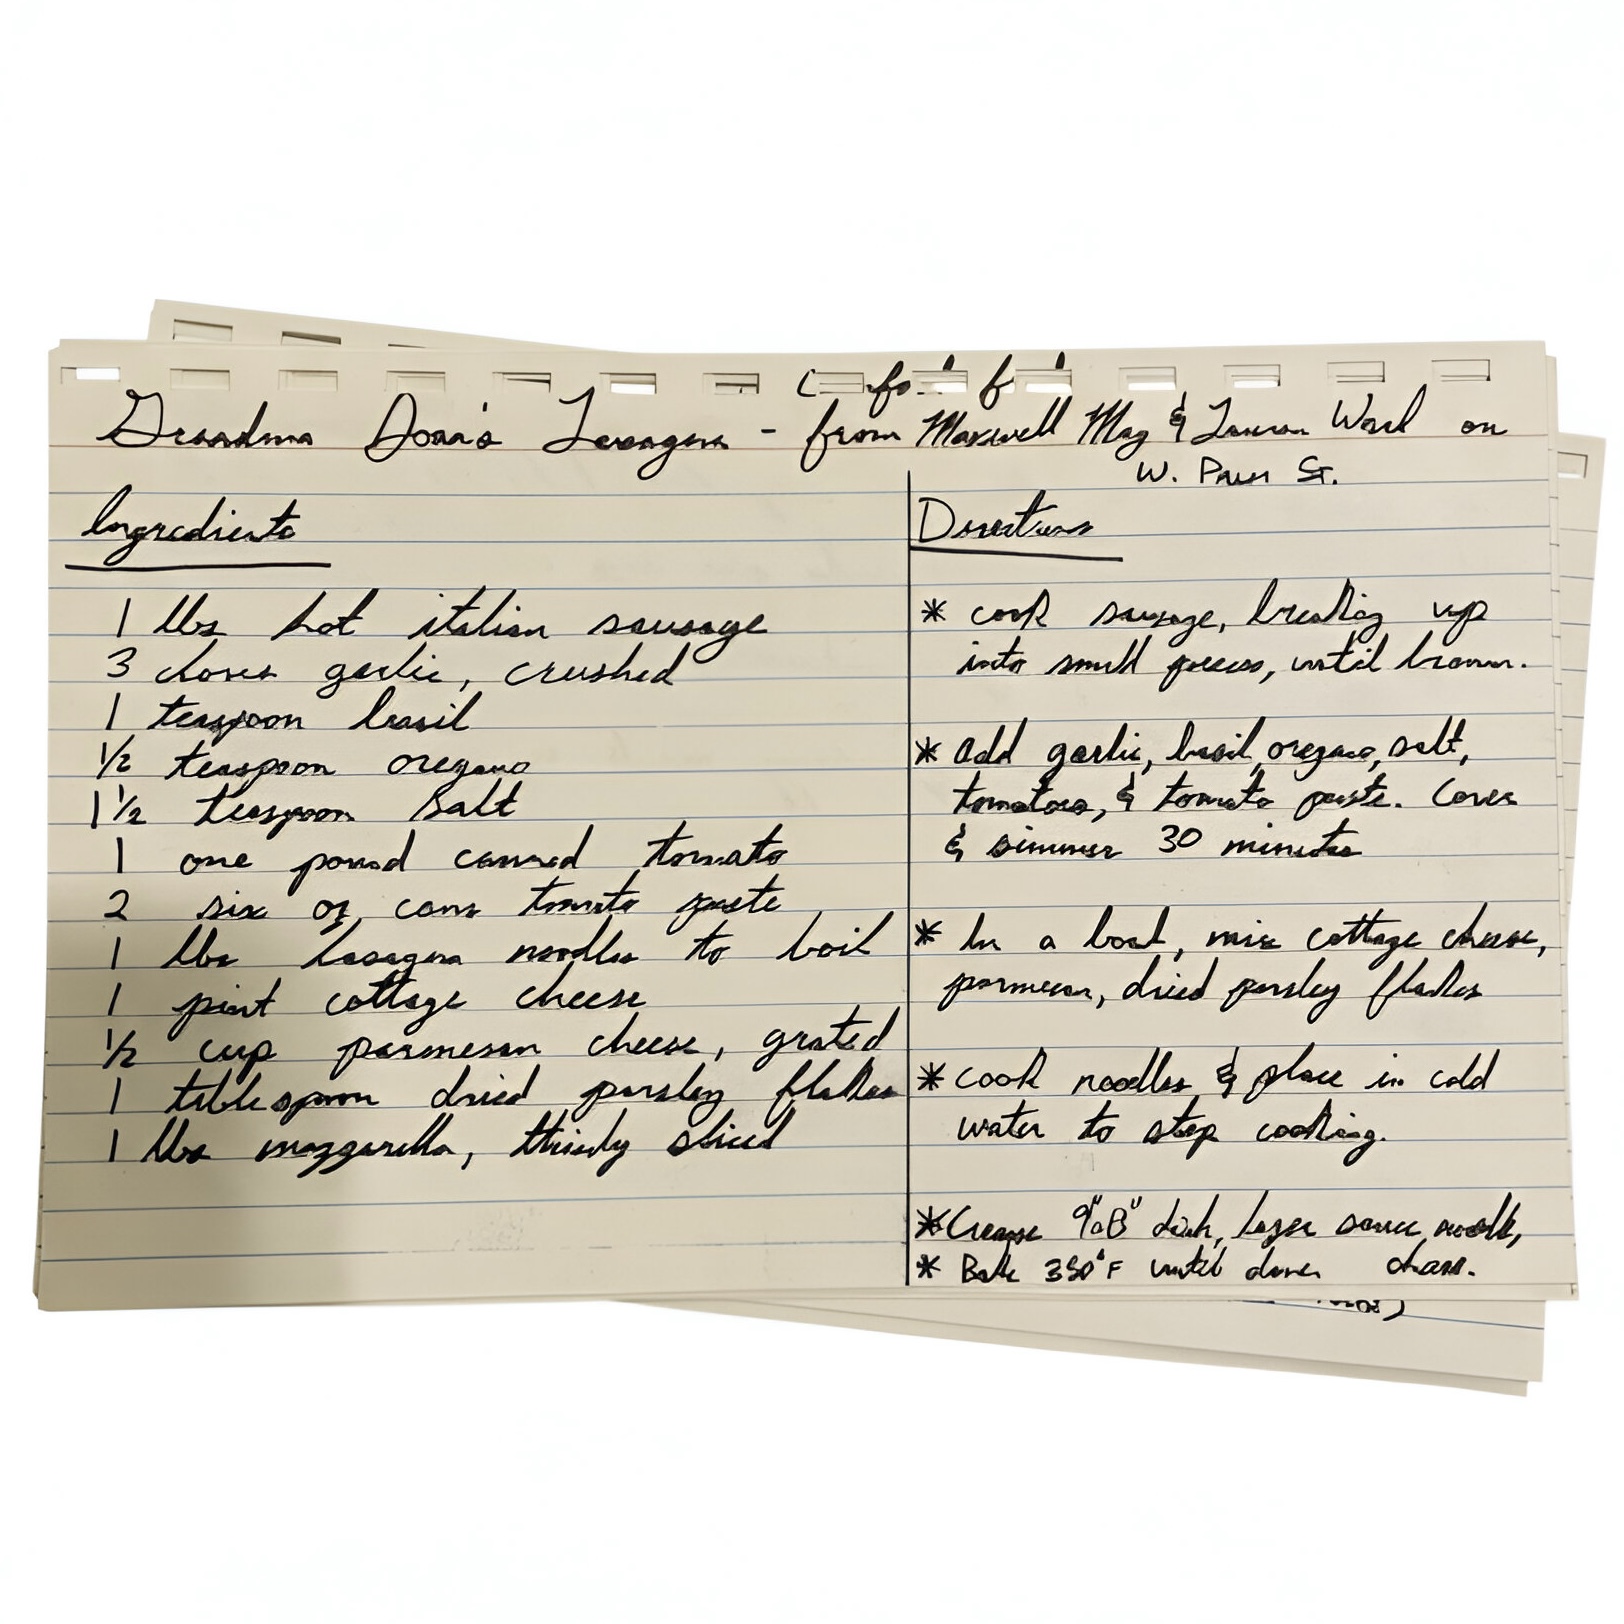 Grandma Doar's Lasagna - from Maxwell May & Lauren Ward on
W. Palm St.
Ingredients
1 lbs hot italian sausage
3 cloves garlic, crushed
1 teaspoon basil
1/2 teaspoon oregano
1 1/2 teaspoon salt
1 one pound canned tomato
2 six oz cans tomato paste
1 lbs lasagna noodles to boil
1 pint cottage cheese
1/2 cup parmesan cheese, grated
1 tablespoon dried parsley flakes
1 lbs mozzarella, thinly sliced
Directions
* cook sausage, breaking up
into small pieces, until brown.
* add garlic, basil, oregano, salt,
tomatoes, & tomato paste. Cover
& simmer 30 minutes
* In a bowl, mix cottage cheese,
parmesan, dried parsley flakes
* cook noodles & place in cold
water to stop cooking.
* Grease 9"x13" dish, layer sauce, noodle,
* Bake 350°F until done. cheese.